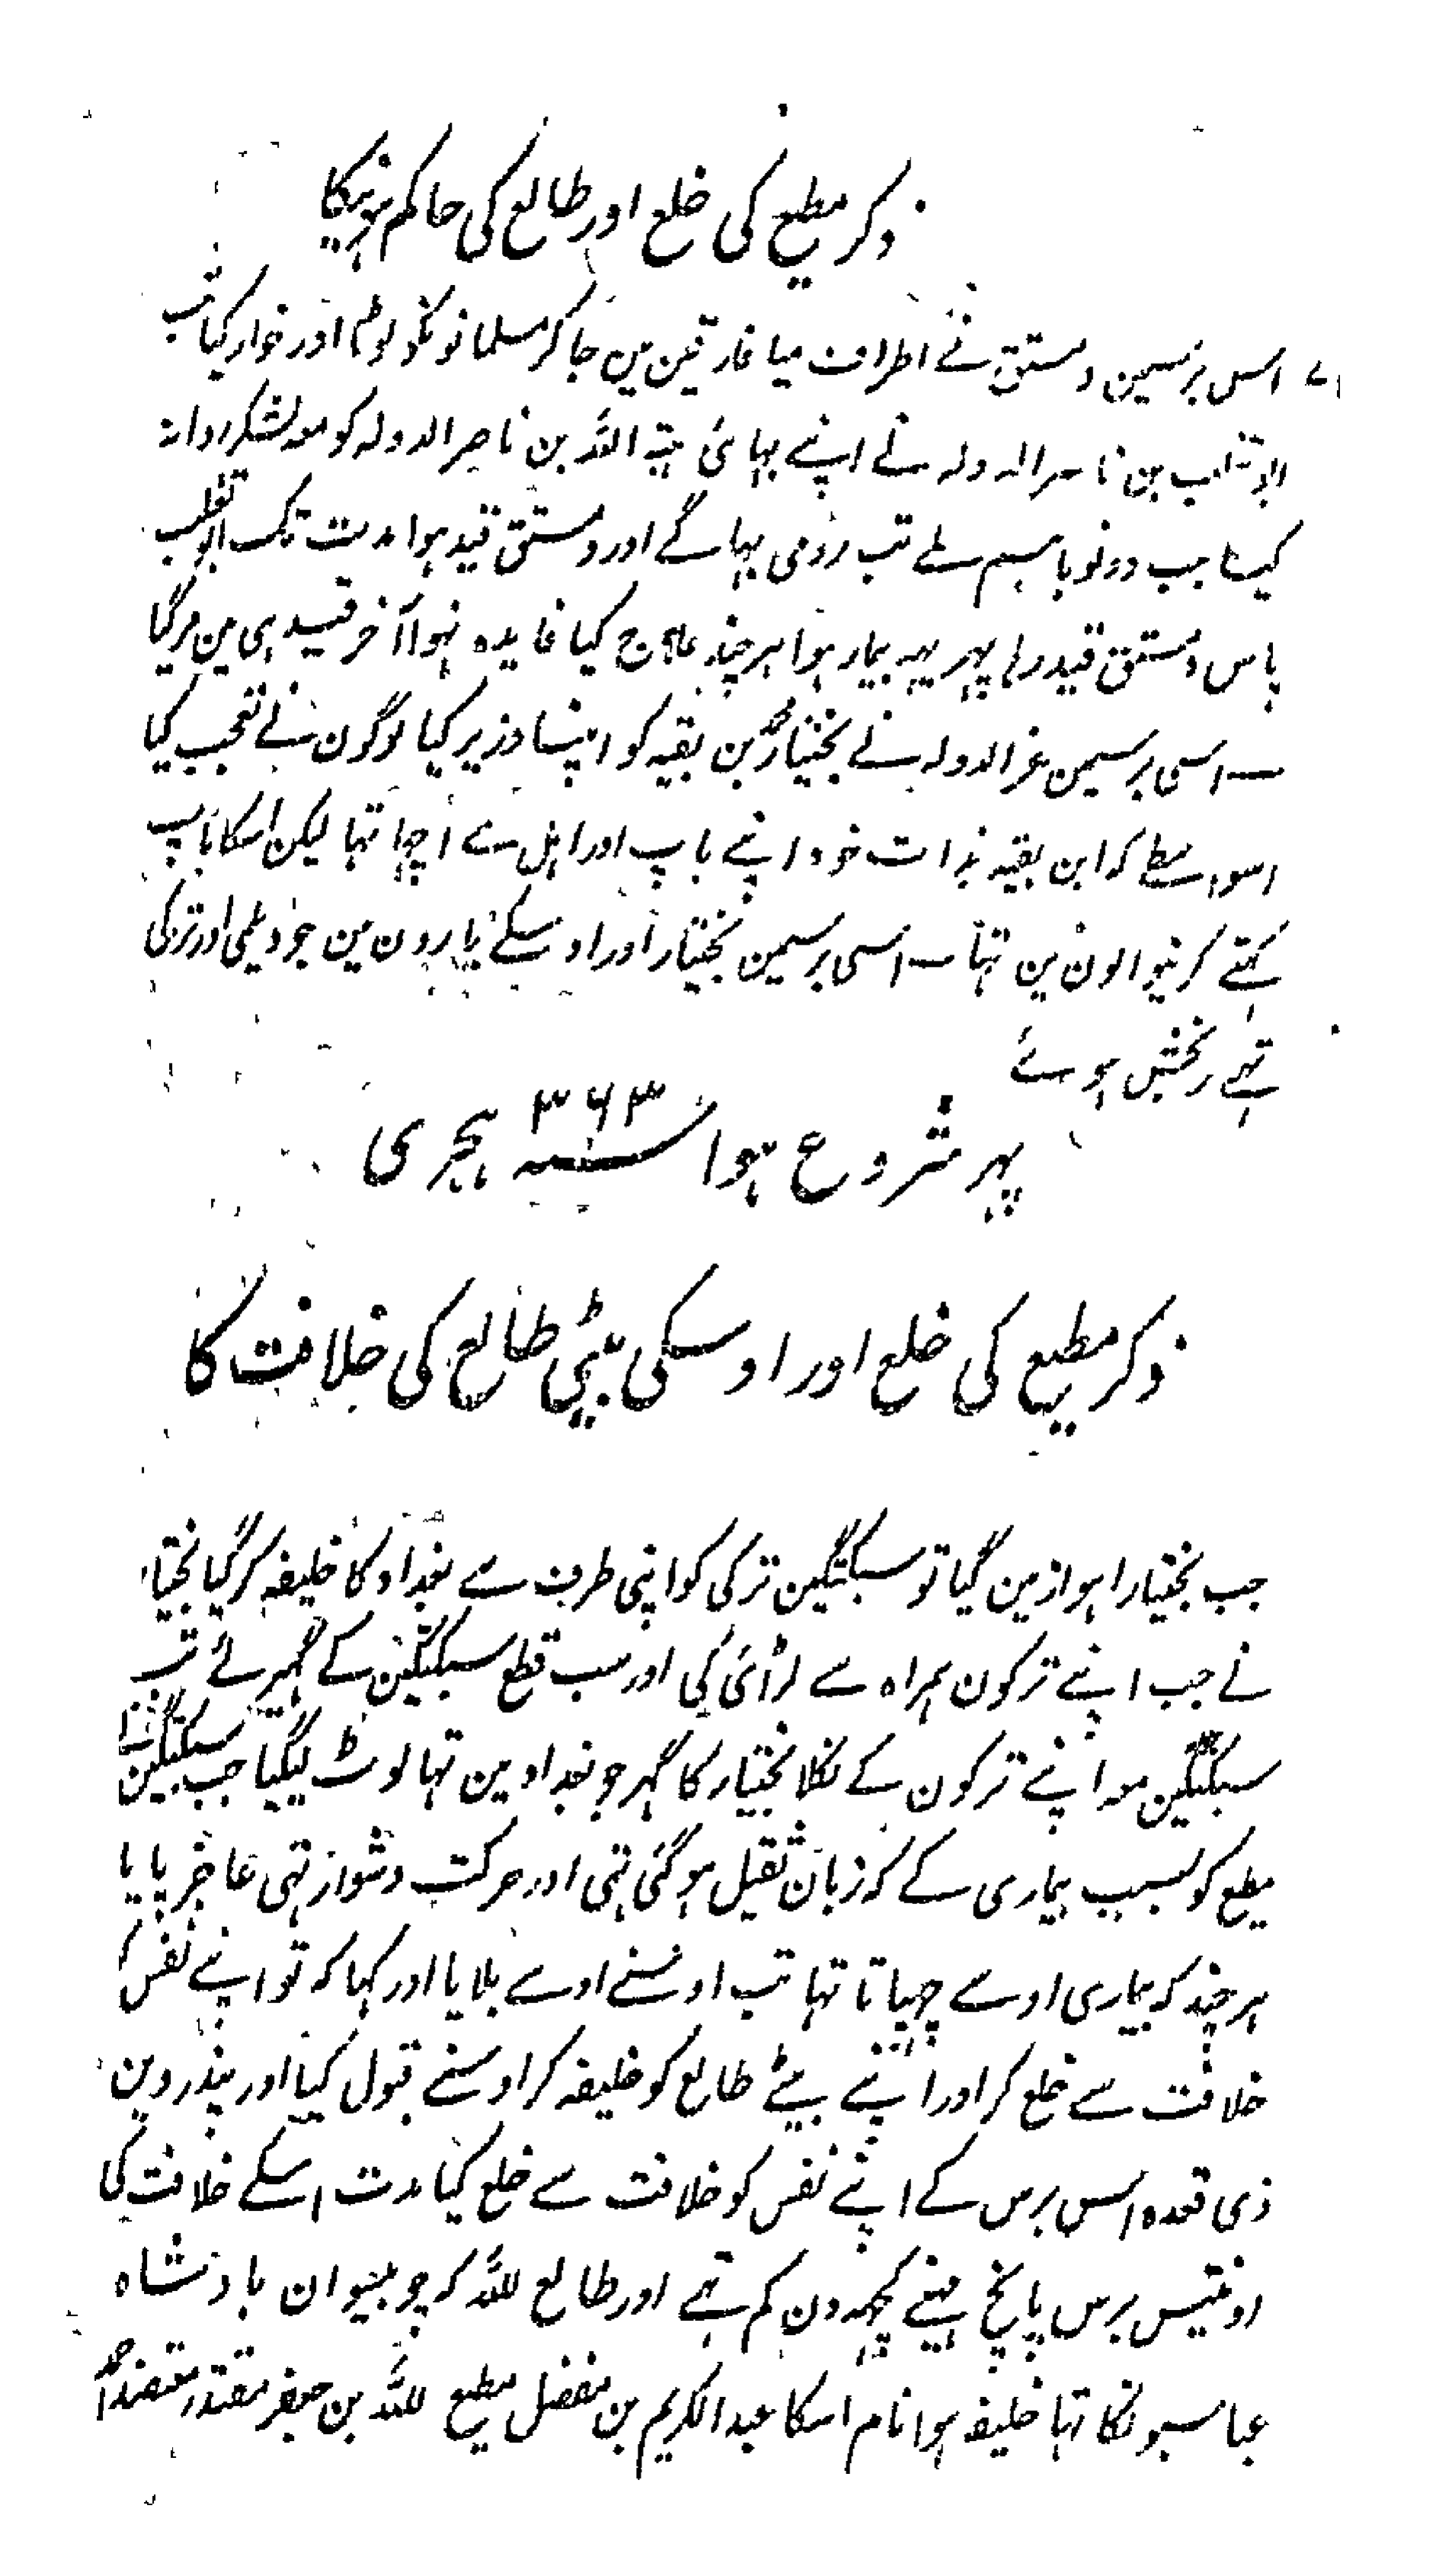 ذکر مطیع کی خلع اور طالع کی حاکم ہونیکا
اس برسمین دمستق نے اطراف میا فارقین مین جاکر مسلمانونکو لوٹا اور خوار کیا تب
ابو تغلب بن ناصر الدولہ نے اپنے بہائی ہبۃ اللہ بن ناصر الدولہ کو معہ لشکر روانہ
کیا جب دونو باہم ملے تب رومی بہاگے اور دمستق قید ہوا مدت تک ابو تغلب
پاس دمستق قید رہا پہر یہہ بیمار ہوا ہر چند علاج کیا فایدہ نہوا آخر قید ہی مین مرگیا
اسی برسمین عز الدولہ نے بختیار محمد بن بقیہ کو اپنا وزیر کیا لوگون نے تعجب کیا
اسواسطے کہ ابن بقیہ بذات خود اپنے باپ اور اہل سے اچہا تہا لیکن اسکا باپ
کہتے کرنیوالون مین تہا اسی برسمین بختیار اور اوسکے یارون مین جو دیلمی اور ترکی
تہے رنجشین ہوئے
پہر شروع ہوا سنہ ۳۶۳ ہجری
ذکر مطیع کی خلع اور اوسکی بیٹی طالع کی خلافت کا
جب بختیار اہواز مین گیا تو سبکتگین ترکی کو اپنی طرف سے بغداد کا خلیفہ کر گیا بختیار
نے جب اپنے ترکون ہمراہ سے لڑائی کی اور سب قطع سبکتگین کے گہیر لئے تب
سبکتگین معہ اپنے ترکون کے نکلا بختیار کا گہر جو بغداد مین تہا لوٹ لیگیا جب سبکتگین نے
مطیع کو بسبب بیماری کے کہ زبان ثقیل ہو گئی تہی اور حرکت دشوار تہی عاجز پایا
ہر چند کہ بیماری اوسے چہپاتا تہا تب اوسنے اوسے بلایا اور کہا کہ تو اپنے نفس کو
خلافت سے خلع کر اور اپنے بیٹے طالع کو خلیفہ کر اوسنے قبول کیا اور پندروین
ذی قعدہ اس برس کے اپنے نفس کو خلافت سے خلع کیا مدت اسکے خلافت کی
اونتیس برس پانچ مہینے کچہہ دن کم تہے اور طالع للہ کہ چوبیسوان بادشاہ
عباسیونکا تہا خلیفہ ہوا نام اسکا عبد الکریم بن مفضل مطیع للہ بن جعفر مقتدر معتضد احمد